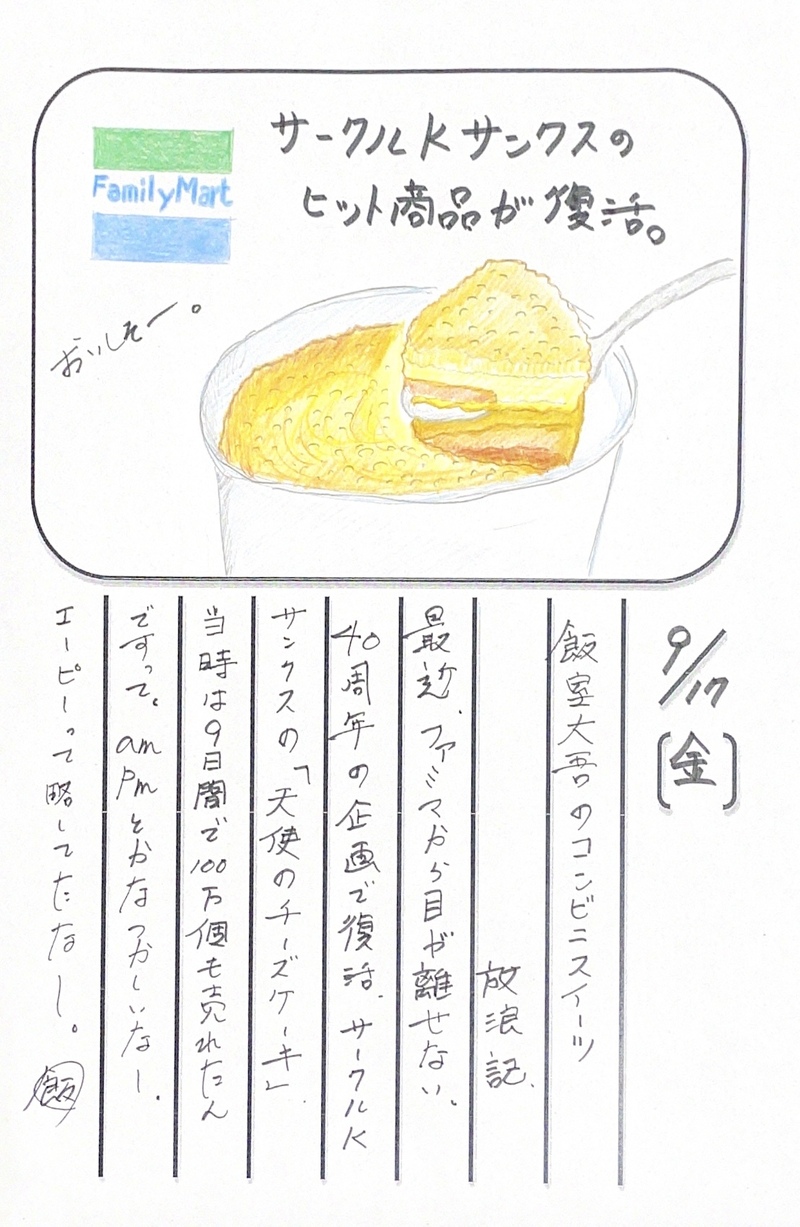 サークルKサンクスの
ヒット商品が復活。
FamilyMart
おいしそー。
9/17
(金)
飯室大吾のコンビニスイーツ
放浪記、
最近、ファミマから目が離せない。
40周年の企画で復活、サークルK
サンクスの「天使のチーズケーキ」
当時は9日間で100万個も売れたん
ですって。am
pmとかなつかしいなー。
エーピーって略してたなー。
飯